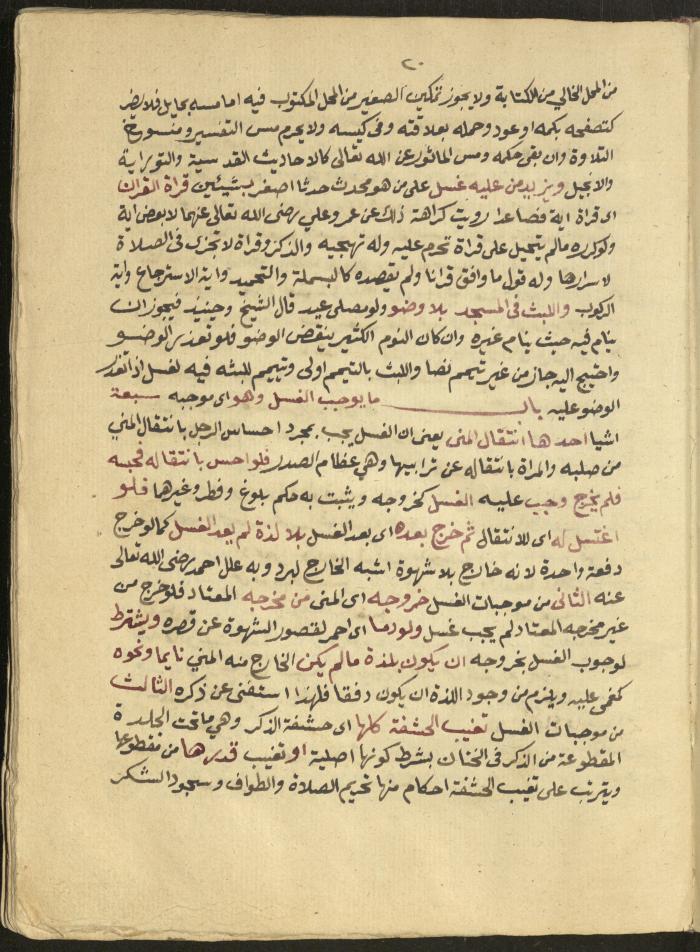 ٢٠
من المحل الخالي من الكتابة ولا يجوز تمكين الصغير من المحل المكتوب فيه اما مسه بحايل فلا يضر
كتصفحه بكمه او عود وحمله بعلاقته وفى كيسه ولا يحرم مس التفسير ومنسوخ
التلاوة وان بقى حكمه ومس الماثور عن الله تعالى كالاحاديث القدسية والتوراية
والانجيل ويزيد من عليه غسل على من هو محدث حدثا اصغر بشيئين قراة القران
اى قراة اية فصاعدا رويت كراهة ذلك عن عمر وعلي رضى الله تعالى عنهما لا بعض اية
ولو كرره مالم يتحيل على قراة تحرم عليه وله تهجيه والذكر وقراة لا تجزى فى الصلاة
لاسرارها وله قول ما وافق قرانا ولم يقصده كالبسملة والتحميد واية الاسترجاع واية
الركوب واللبث فى المسجد بلا وضو ولو مصلى عيد قال الشيخ وحينيذ فيجوز ان
ينام فيه حيث ينام غيره وان كان النوم الكثير ينقض الوضو فلو تعذر الوضو
واحتيج اليه جاز من غير تيمم نصا واللبث بالتيمم اولى ويتيمم للبثه فيه لغسل اذا تعذر
الوضو عليه باب ما يوجب الغسل وهو اى موجبه سبعة
اشيا احدها انتقال المنى يعنى ان الغسل يجب بمجرد احساس الرجل بانتقال المنى
من صلبه والمراة بانتقاله عن ترايبها وهي عظام الصدر فلو احس بانتقاله فحبسه
فلم يخرج وجب عليه الغسل كخروجه ويثبت به حكم بلوغ وفطر وغيرهما فلو
اغتسل له اى للانتقال ثم خرج بعده اى بعد الغسل بلا لذة لم يعد الغسل كما لو خرج
دفعة واحدة لانه خارج بلا شهوة اشبه الخارج لبرد وبه علل احمد رضى الله تعالى
عنه الثانى من موجبات الغسل خروجه اى المنى من مخرجه المعتاد فلو خرج من
غير مخرجه المعتاد لم يجب غسل ولو دما اى احمر لقصور الشهوة عن قصره ويشترط
لوجوب الغسل بخروجه ان يكون بلذة مالم يكن الخارج منه المني نايما ونحوه
كمغمى عليه ويلزم من وجود اللذة ان يكون دفقا فلهذا استغنى عن ذكره الثالث
من موجبات الغسل تغيب الحشفة كلها اى حشفة الذكر وهي ما تحت الجلدة
المقطوعة من الذكر فى الختان بشرط كونها اصلية او تغيب قدرها من مقطوعها
ويترتب على تغيب الحشفة احكام منها تحريم الصلاة والطواف وسجود الشكر